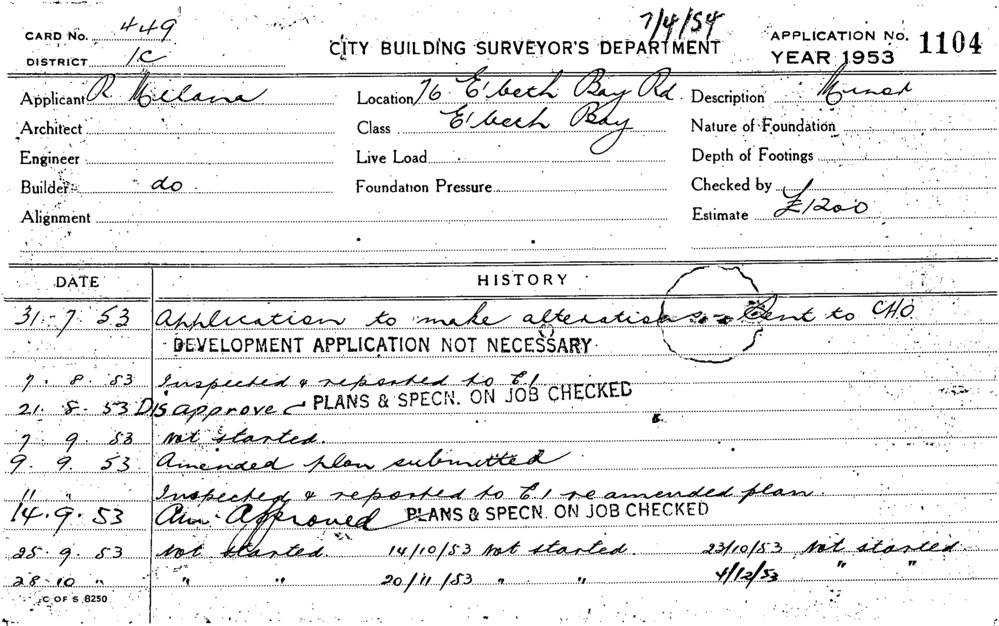 7/4/54
CARD No. 449
CITY BUILDING SURVEYOR'S DEPARTMENT
APPLICATION No. 1104
DISTRICT 1C
YEAR 1953
Applicant R Milana
Location 76 E'beth Bay Rd.
Description Minor
Architect
Class E'beth Bay
Nature of Foundation
Engineer
Live Load
Depth of Footings
Builder do
Foundation Pressure
Checked by
Alignment
Estimate £1200
DATE HISTORY
31-7 53 Application to make alterations - Sent to CHO
DEVELOPMENT APPLICATION NOT NECESSARY
7. 8. 53 Inspected & reported to E1
21. 8. 53 Disapprove PLANS & SPECN. ON JOB CHECKED
7 9. 53 Not started.
9. 9. 53 Amended plan submitted
11 " Inspected & reported to E1 re amended plan.
14. 9. 53 Am. Approved PLANS & SPECN. ON JOB CHECKED
25. 9. 53 Not started. 14/10/53 Not started. 23/10/53 Not started.
28. 10 " " " 20/11/53 " " 4/12/53 " "
C OF S 8250